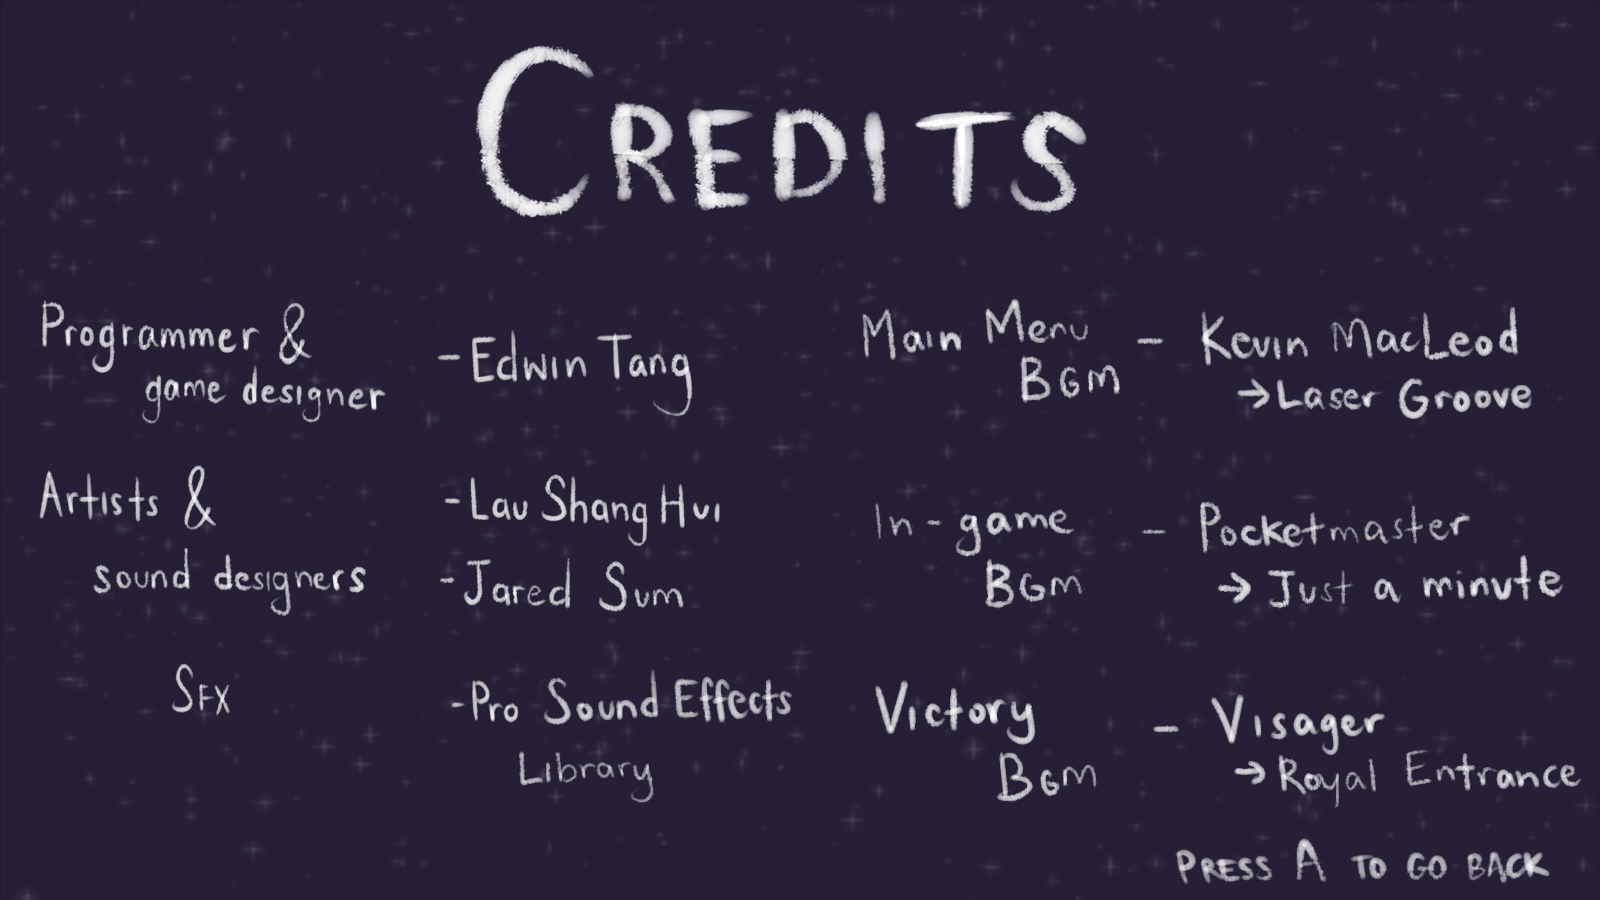 CREDITS
Programmer &
game designer
-Edwin Tang
Artists &
sound designers
-Lau Shang Hui
-Jared Sum
SFX
-Pro Sound Effects
Library
Main Menu
BGM
- Kevin MacLeod
→Laser Groove
In-game
BGM
- Pocketmaster
→ Just a minute
Victory
BGM
- Visager
→ Royal Entrance
PRESS A TO GO BACK